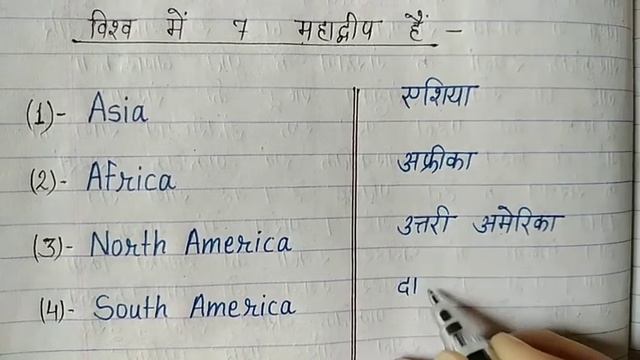 विश्व में 7 महाद्वीप हैं -
(1)- Asia एशिया
(2)- Africa अफ्रीका
(3)- North America उत्तरी अमेरिका
(4)- South America दा